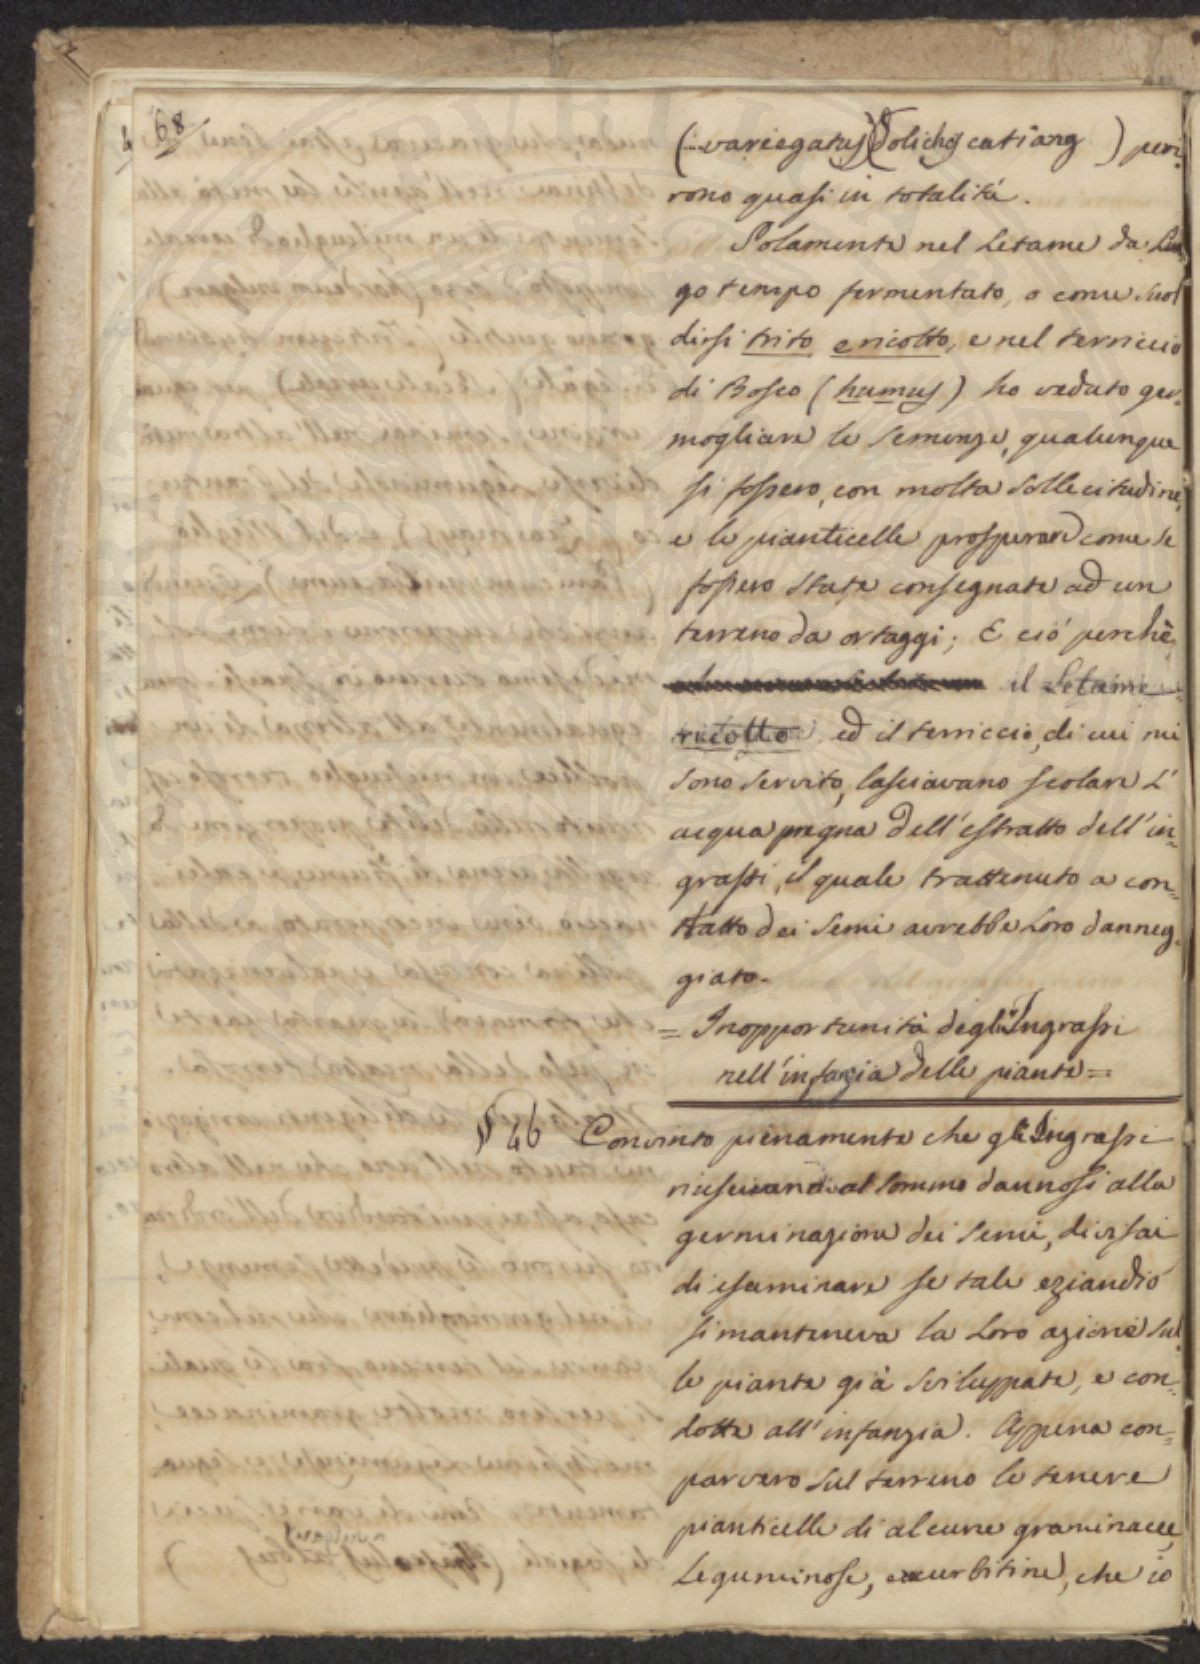 68
(variegatus) (Dolichos catiang) peri-
rono quasi in totalità.
Solamente nel Letame da Lun
go tempo fermentato, o come suol
dirsi trito e ricotto, e nel terriccio
di Bosco (humus) ho veduto ger-
mogliare le semenze, qualunque
si fossero, con molta sollecitudine,
e le pianticelle prosperare come se
fossero state consegnate ad un
terreno da ortaggi; E ciò perchè
il Letame
ricotto ed il terriccio, di cui mi
sono servito, lasciavano scolare L'
acqua pregna dell'estratto dell'in-
grassi, il quale trattenuto a con-
tatto dei semi avrebbe Loro danneg-
giato.
= Inopportunità degli Ingrassi
nell'infanzia delle piante =
§ 46 Convinto pienamente che gli Ingrassi
riuscivano al sommo dannosi alla
germinazione dei semi, divisai
di esaminare se tale eziandio
si manteneva la Loro azione sul
le piante già sviluppate, e con-
dotte all'infanzia. Appena com-
parvero sul terreno le tenere
pianticelle di alcune graminacee,
Leguminose, cucurbitine, che io